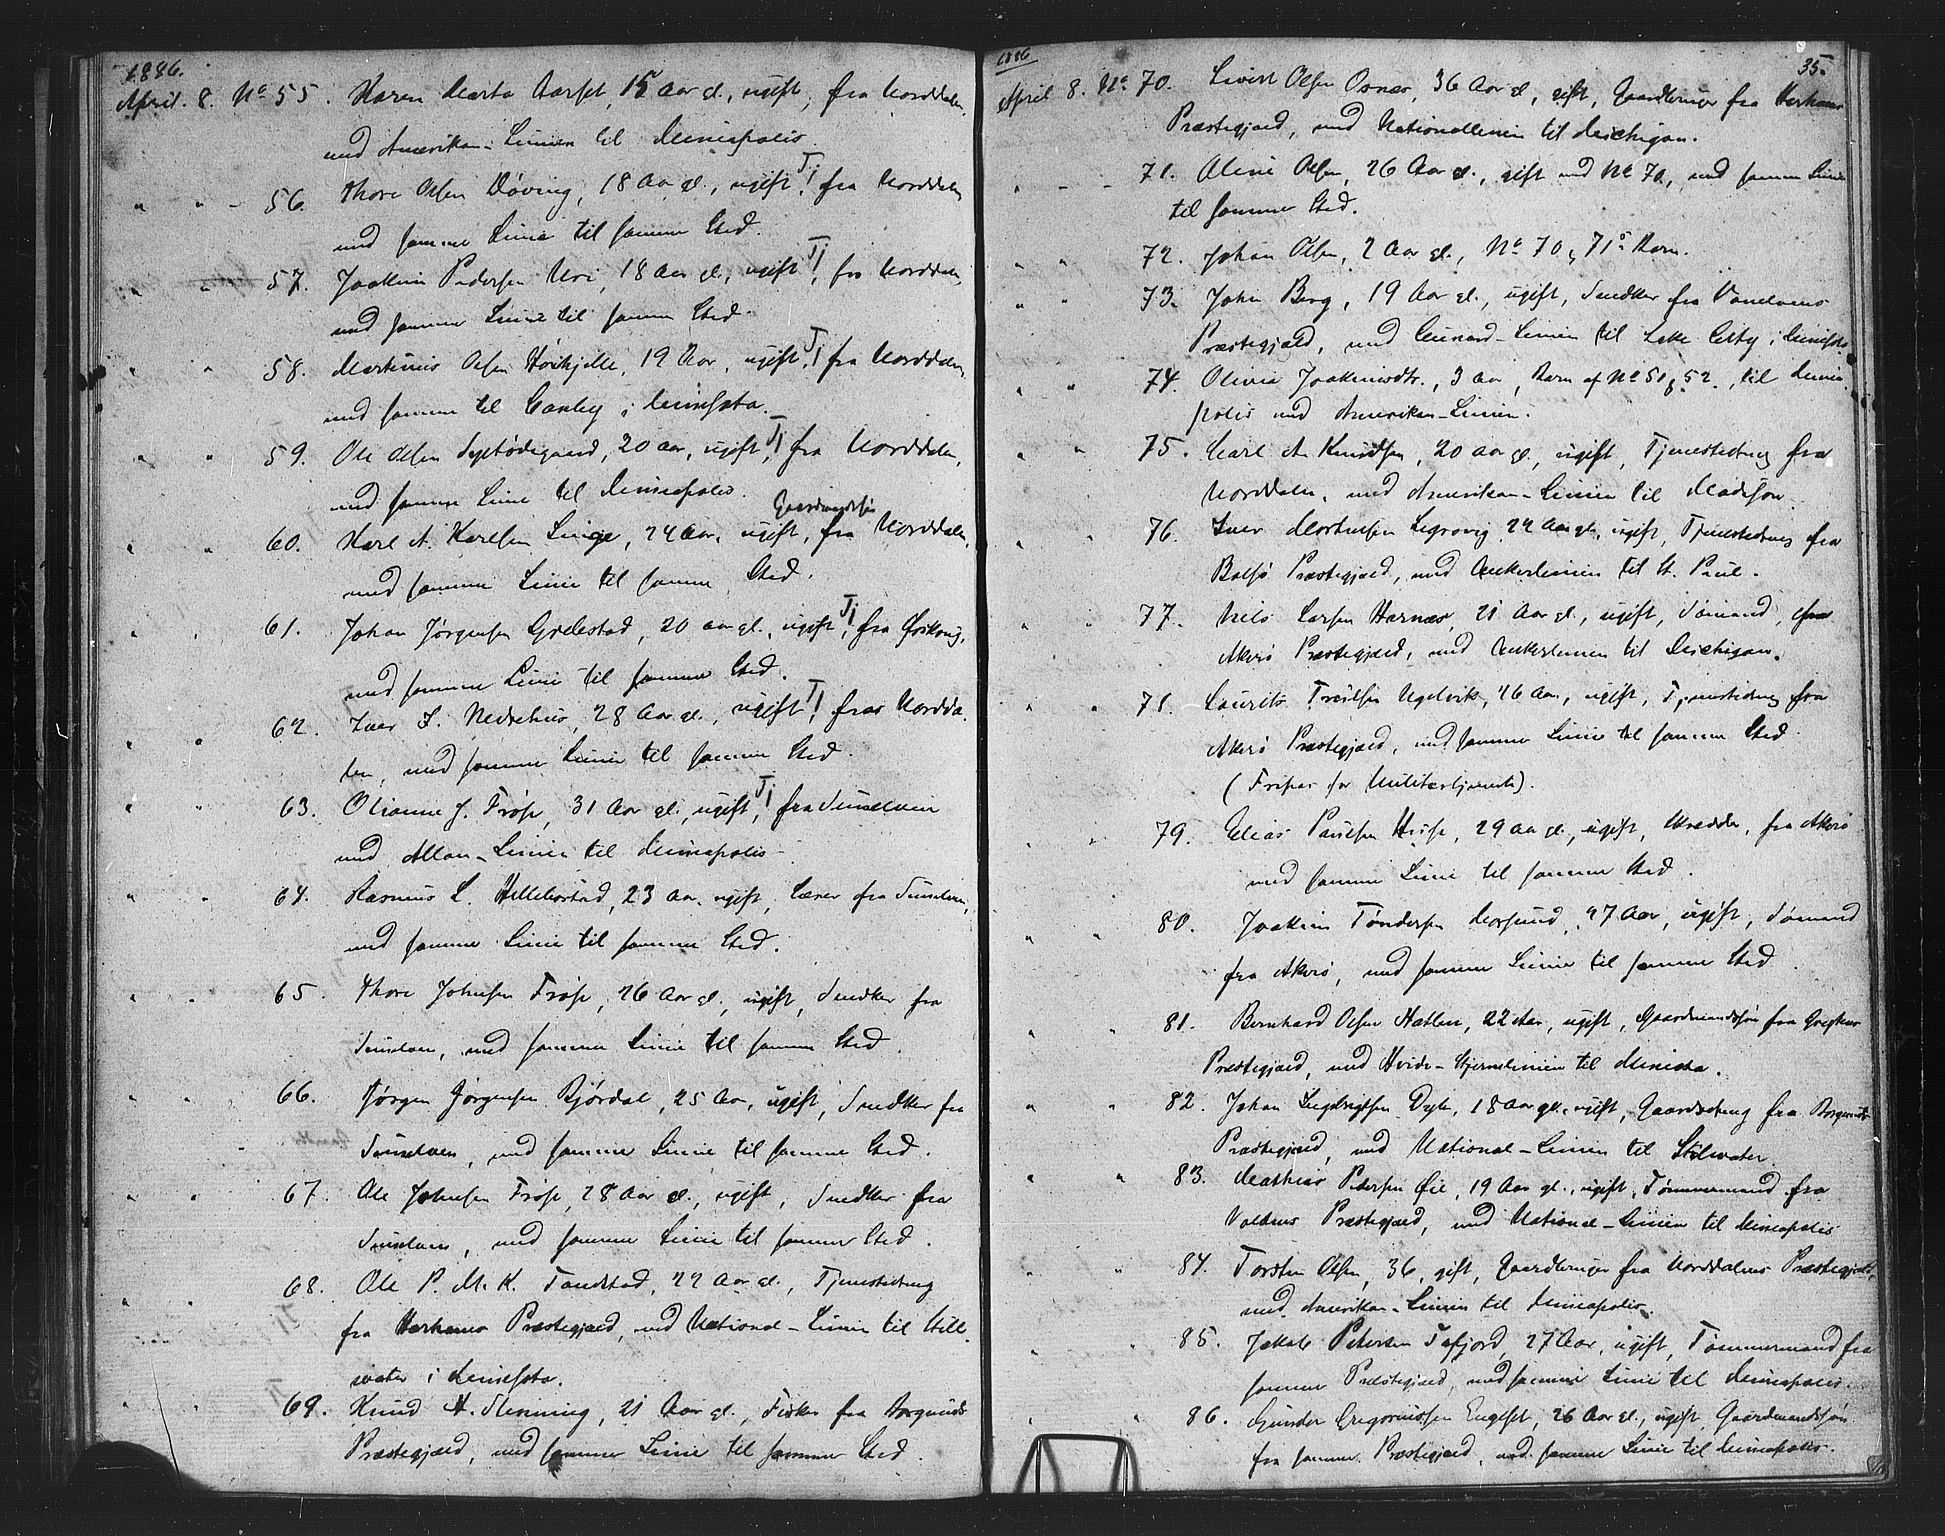 1886.
April. 8. No 55. Karen Marta Aarset, 15 Aar gl., ugift, fra Norddalen,
med Amerika-Linien til Mineapolis.
" " - 56. Thore Olsen Døving, 18 Aar gl., ugift, Tj fra Norddalen
med samme Linie til samme Sted.
" " 57. Joakim Pedersen Uri, 18 Aar gl., ugift, Tj fra Norddalen,
med samme Linie til samme Sted.
" " 58. Martinus Olsen Hovkjelle, 19 Aar, ugift, Tj fra Norddalen,
med samme til Canby i Minesota.
" " 59. Ole Olsen Syltødegaard, 20 Aar, ugift, Tj fra Norddalen,
med samme Linie til Mineapolis.
Gaardmandssøn
" " 60. Karl A. Karlsen Linge, 24 Aar, ugift, fra Norddalen,
med samme Linie til samme Sted.
" " 61. Johan Jørgensen Grebstad, 20 Aar gl., ugift, Tj fra Ørskoug,
med samme Linie til samme Sted.
" " 62. Iver I. Nedrehus, 28 Aar gl., ugift, Tj fra Nordda-
len, med samme Linie til samme Sted.
" " 63. Olianne J. Frøse, 31 Aar gl., ugift, Tj fra Sunelven
med Allan-Linien til Mineapolis.
" " 64. Rasmus L. Hellebostad, 23 Aar, ugift, Lærer fra Sunelven,
med samme Linie til samme Sted.
" " 65. Thore Johnsen Frøse, 26 Aar gl., ugift, Snedker fra
Sunelven, med samme Linie til samme Sted.
" " 66. Jørgen Jørgensen Bjørdal, 25 Aar, ugift, Snedker fra
Sunelven, med samme Linie til samme Sted.
" " 67. Ole Johnsen Frøse, 28 Aar gl., ugift, Snedker fra
Sunelven, med samme Linie til samme Sted.
" " 68. Ole P. M. K. Tandstad, 22 Aar gl., Tjenestedreng
fra Harhams Præstegjæld, med National-Linien til Still-
water i Minesota.
69. Knud H. Slenning, 21 Aar gl., Fisker fra Borgunds
Præstegjæld, med samme Linie til samme Sted.
1886 35.
April 8. No 70. Sivert Olsen Osnæs, 36 Aar gl, gift, Gaardbruger fra Harhams
Præstegjæld, med Nationallinien til Michigan.
" - - 71. Oline Olsen, 26 Aar gl., gift med No 70, med samme Linie
til samme Sted.
" " 72. Johan Olsen, 2 Aar gl., No 70 & 71s Barn.
" " 73. John Berg, 19 Aar gl., ugift, Snedker fra Vanelvens
Præstegjæld, med Cunard-Linien til Lake City i Minesota
" " 74 Olivia Joakimsdtr., 3 Aar, Barn af No 51 & 52, til Minea-
polis med Amerika-Linien.
" " 75. Carl A. Knudsen, 20 Aar gl., ugift, Tjenestedreng fra
Norddalen, med Amerika-Linien til Madison
" " 76. Iver Mortensen Legrovig, 22 Aar gl., ugift, Tjenestedreng fra
Bolsø Præstegjæld, med Ankerlinien til St. Paul.
" " 77. Nils Larsen Harnæs, 21 Aar gl., ugift, Sømand, fra
Akerø Præstegjæld, med Ankerlinien til Michigan.
" " 78. Laurits Troelsen Ugelvik, 26 Aar, ugift, Tjenestedreng fra
Akerø Præstegjæld, med samme Linie til samme Sted.
(Fripas for Militærtjeneste).
" " 79. Elias Paulsen Huse, 29 Aar gl., ugift, Skrædder, fra Akerø
med samme Linie til samme Sted.
" " 80. Joakim Tøndersen Morsund, 27 Aar, ugift, Sømand
fra Akerø, med samme Linie til samme Sted.
" " 81. Bernhard Olsen Hatlen, 22 Aar, ugift, Gaardmandssøn fra Grytten
Præstegjæld, med Hvide-Stjernelinien til Minesota.
" " 82. Johan Ingebrigtsen Dyb, 18 Aar gl., ugift, Gaardsdreng fra Borgunds
Præstegjæld, med National-Linien til Stilwater.
" " 83. Mathias Pedersen Øie, 19 Aar gl., ugift, Tømmermand fra
Voldens Præstegjæld, med National-Linien til Mineapolis
" " 84. Torsten Olsen, 36, gift, Gaardbruger fra Norddalens Præstegjæld,
med Amerika-Linien til Mineapolis.
" " 85. Jakob Petersen Tafjord, 27 Aar, ugift, Tømmermand fra
samme Præstegjæld, med samme Linie til Mineapolis.
" " 86. Gunder Gregoriussen Engeset, 26 Aar gl., ugift, Gaardmandssøn
fra samme Præstegjæld, med samme Linie til Mineapolis.